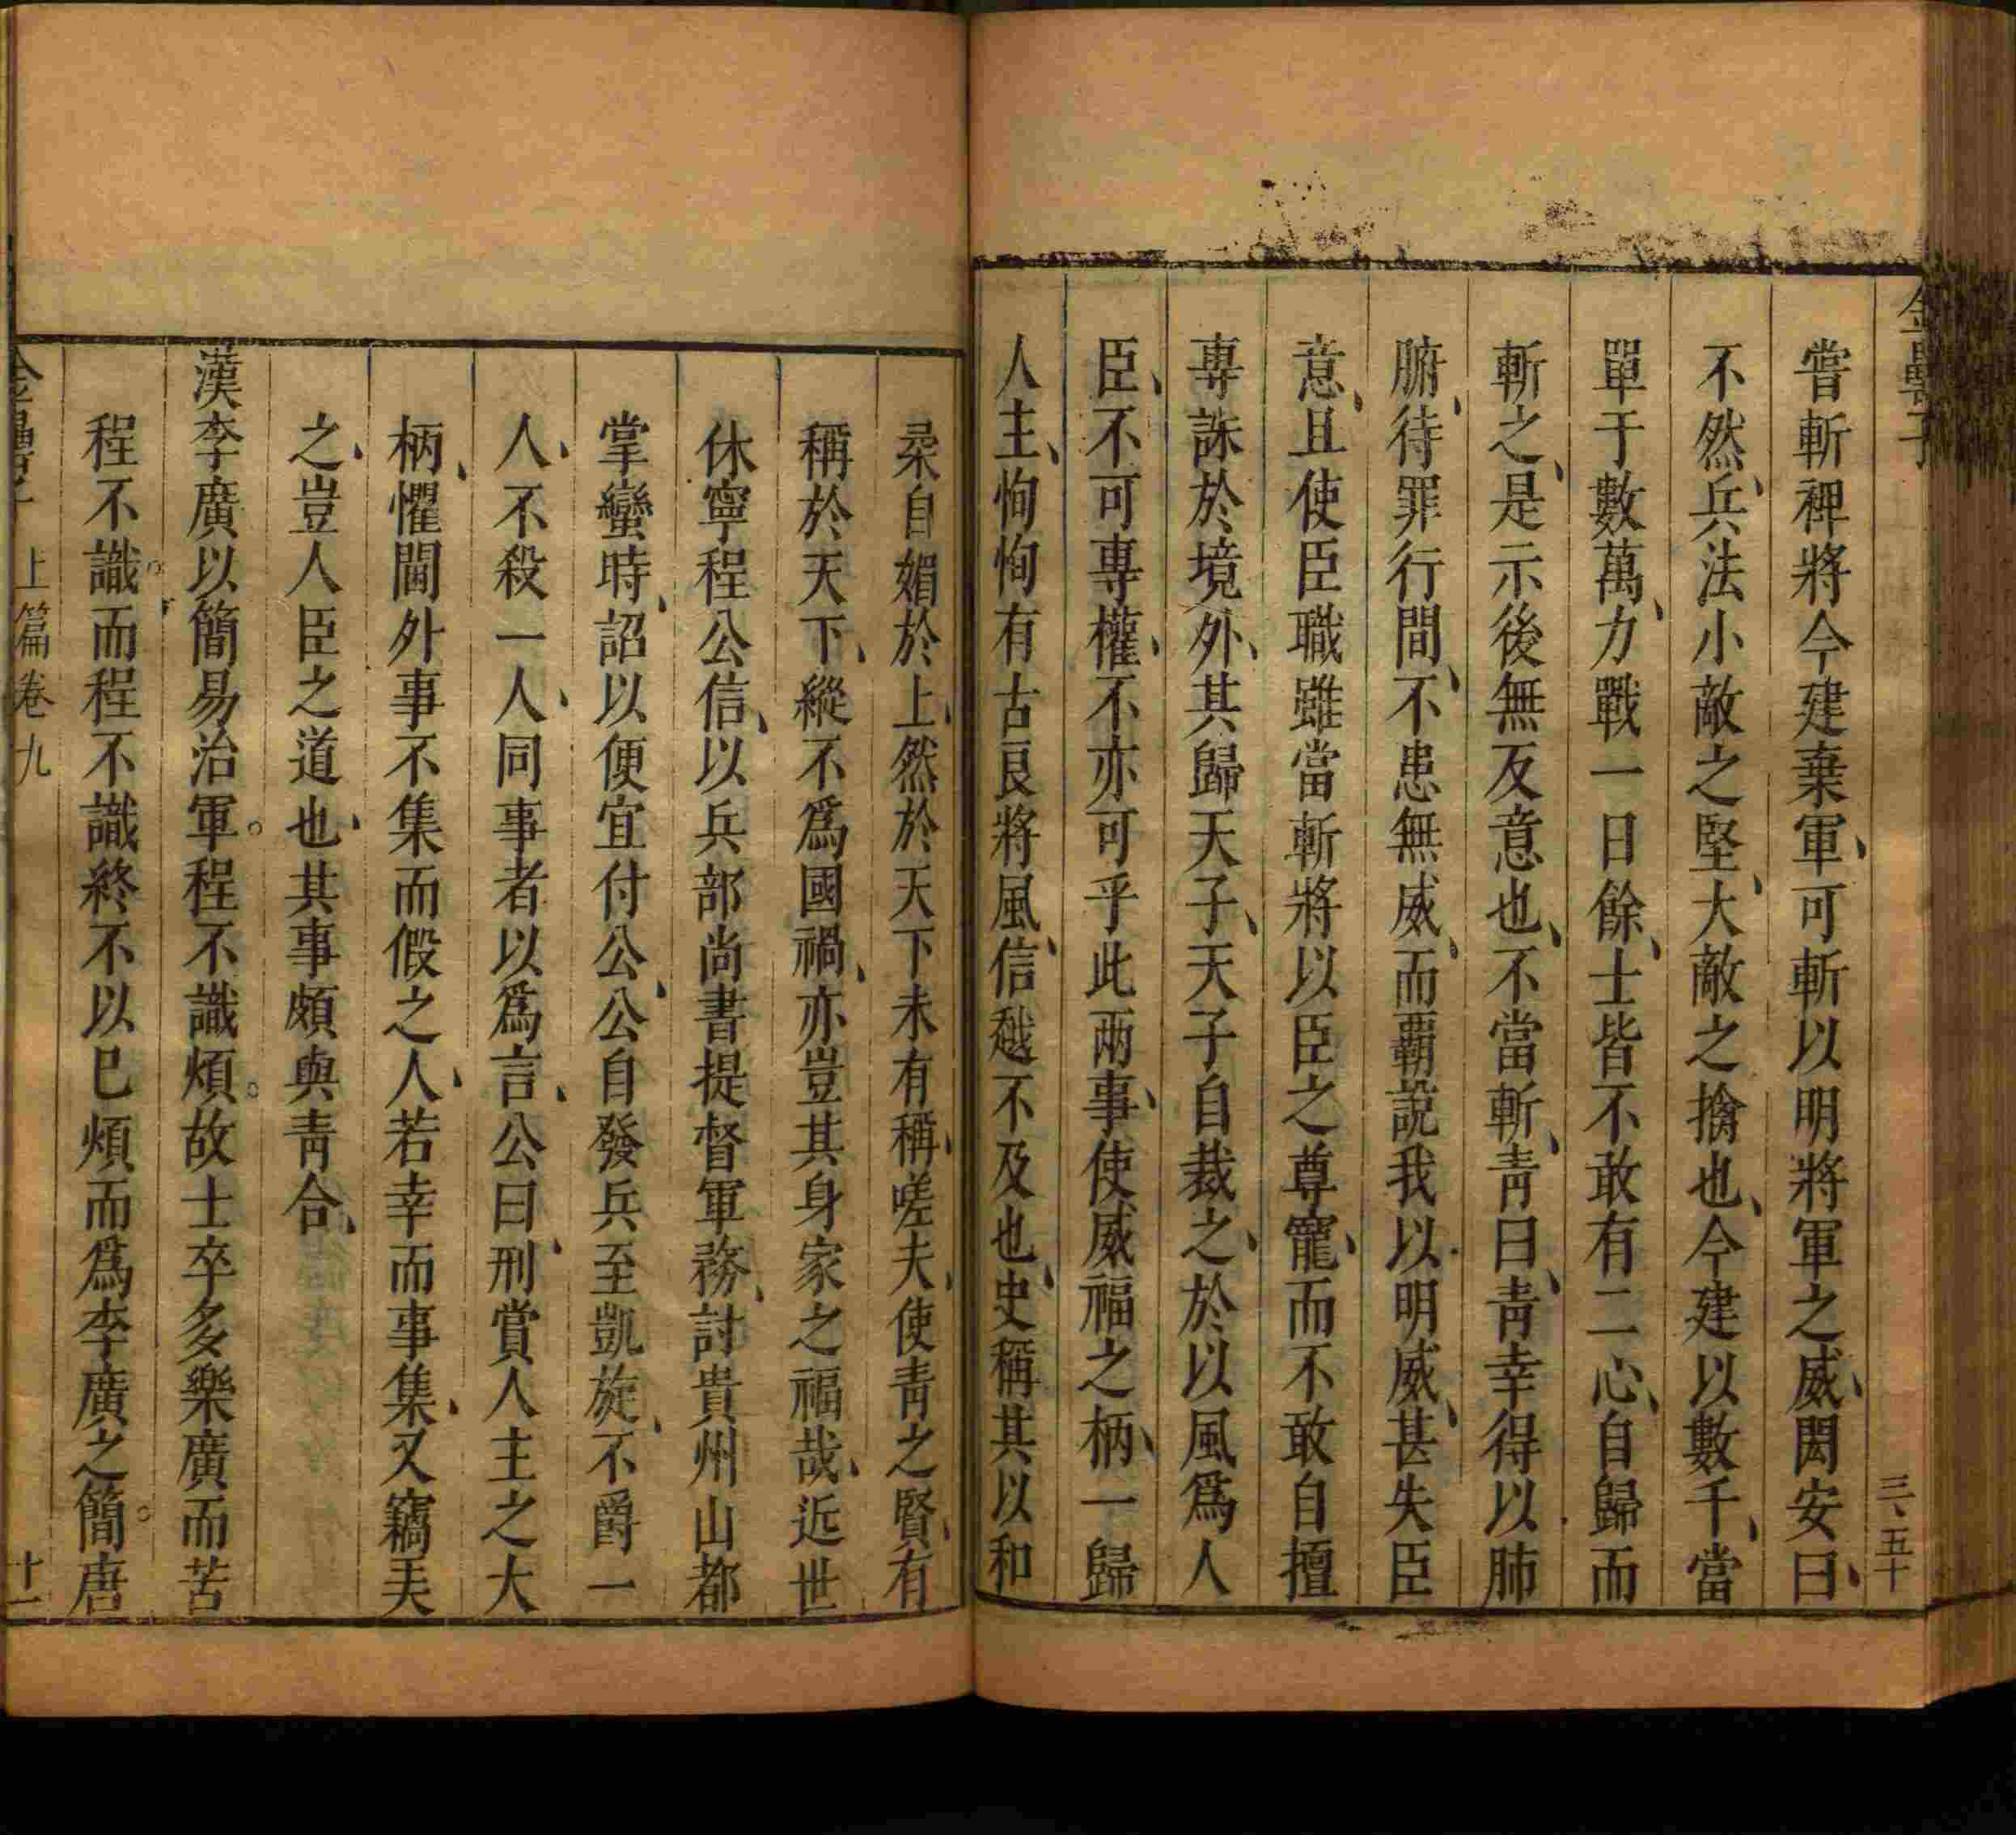 嘗斬裨將今建棄軍可斬以明將軍之威閎安曰
不然兵法小敵之堅大敵之擒也今建以數千當
單于數萬力戰一日餘士皆不敢有二心自歸而
斬之是示後無反意也不當斬青曰青幸得以肺
腑待罪行間不患無威而覇說我以明威甚失臣
意且使臣職雖當斬將以臣之尊寵而不敢自擅
專誅於境外其歸天子天子自裁之於以風爲人
臣不可專權不亦可乎此兩事使威福之柄一歸
人主恂恂有古良將風信越不及也史稱其以和
柔自媚於上然於天下未有稱嗟夫使青之賢有
稱於天下縱不爲國禍亦豈其身家之福哉近世
休寧程公信以兵部尚書提督軍務討貴州山都
掌蠻時詔以便宜付公公自發兵至凱旋不爵一
人不殺一人同事者以爲言公曰刑賞人主之大
柄懼閫外事不集而假之人若幸而事集又竊美
之豈人臣之道也其事頗與青合
漢李廣以簡易治軍程不識煩故士卒多樂廣而苦
程不識而程不識終不以已煩而爲李廣之簡唐
上篇卷九
十一
三五十